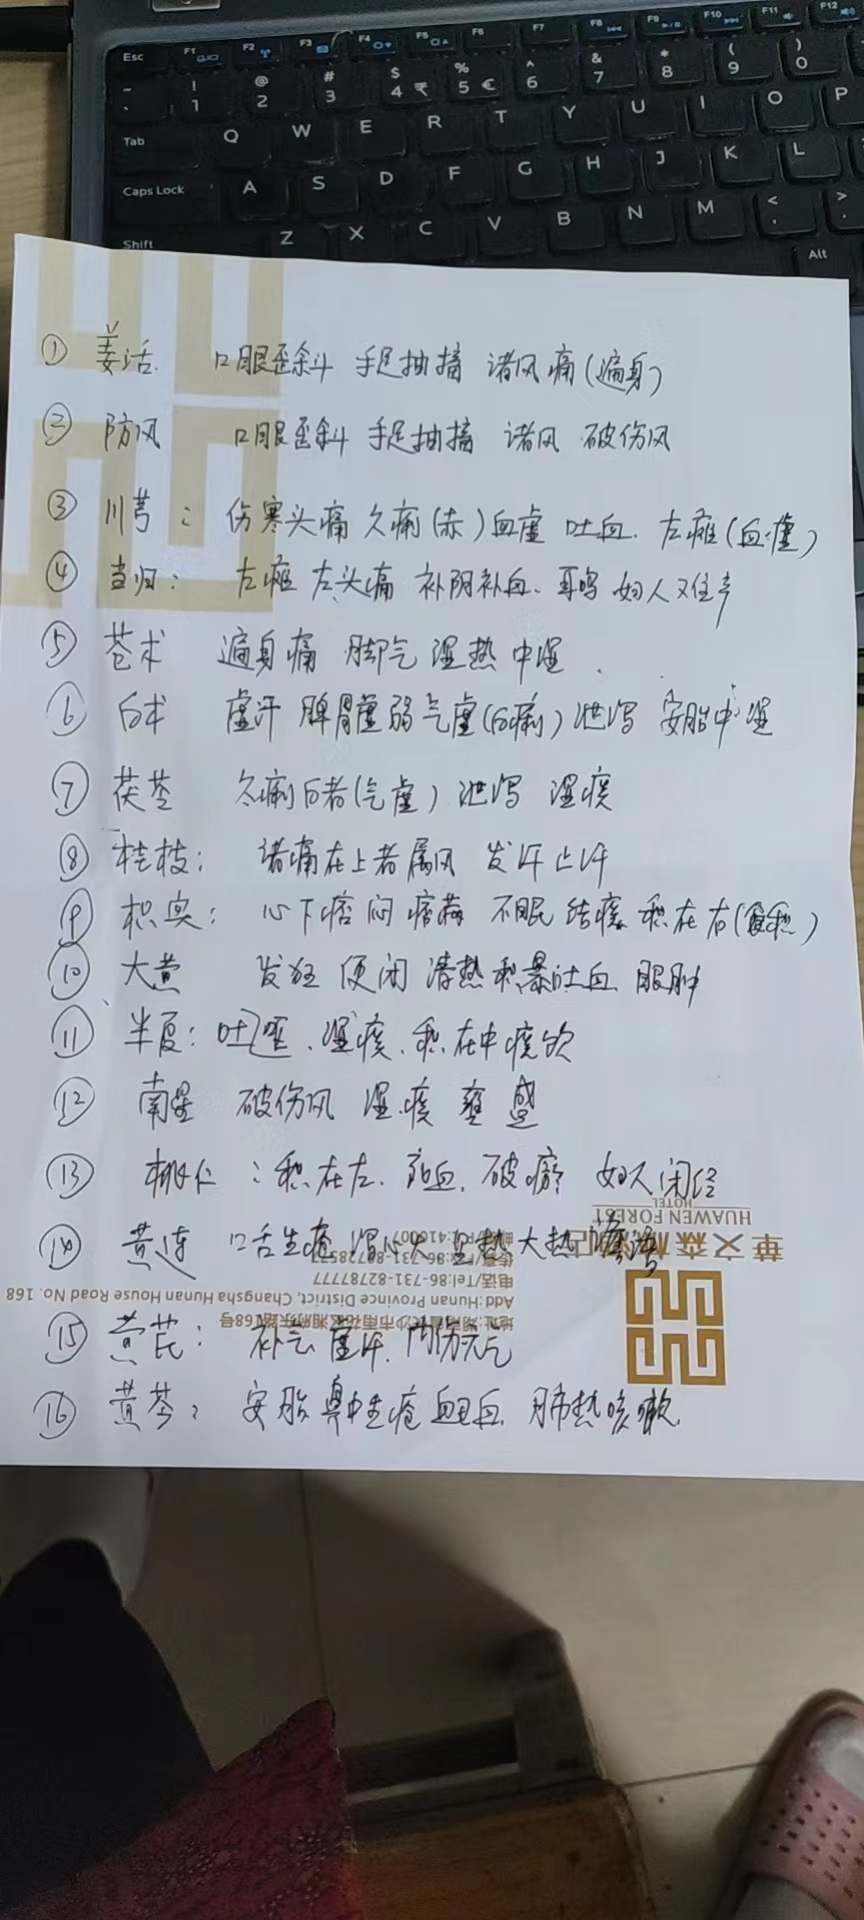 Esc F1 F2 F3 F4 F5 F6 F7 F8 F9 F10 F11 F12
~ ! @ # $ % ^ & * ( )
` 1 2 3 4 ₹ 5 € 6 7 8 9 0
Tab Q W E R T Y U I O P
Caps Lock A S D F G H J K L
Shift Z X C V B N M < >
Alt
① 羌活. 口眼歪斜 手足抽搐 诸风痛(遍身)
② 防风 口眼歪斜 手足抽搐 诸风 破伤风
③ 川芎: 伤寒头痛 久痢(赤)血虚 吐血. 左瘫(血虚)
④ 当归: 左瘫 左头痛 补阴补血、耳鸣 妇人难产
⑤ 苍术 遍身痛 脚气 湿热 中湿
⑥ 白术 虚汗 脾胃虚弱 气虚(白痢) 泄泻 安胎中湿
⑦ 茯苓 久痢白者(气虚) 泄泻 湿痰
⑧ 桂枝: 诸痛在上者属风 发汗止汗
⑨ 枳实: 心下痞闷 痞满 不眠 结痰 积在右(食积)
⑩ 大黄 发狂 便闭 清热积 暴吐血 眼肿
⑪ 半夏: 吐逆、湿痰、积在中痰饮
⑫ 南星 破伤风 湿痰 壅盛
⑬ 桃仁: 积在左. 血. 破瘀 妇人闭经
HOTEL
HUAWEN FOREST
華文森林酒店
⑭ 黄连 口舌生疮 泻心火 热 大热谵语
电话/Tel:86-731-82787777
Add:Hunan Province District, Changsha Hunan House Road No. 168
⑮ 黄芪: 补气 虚汗. 内伤元气
⑯ 黄芩: 安胎 鼻中生疮 衄血. 肺热咳嗽